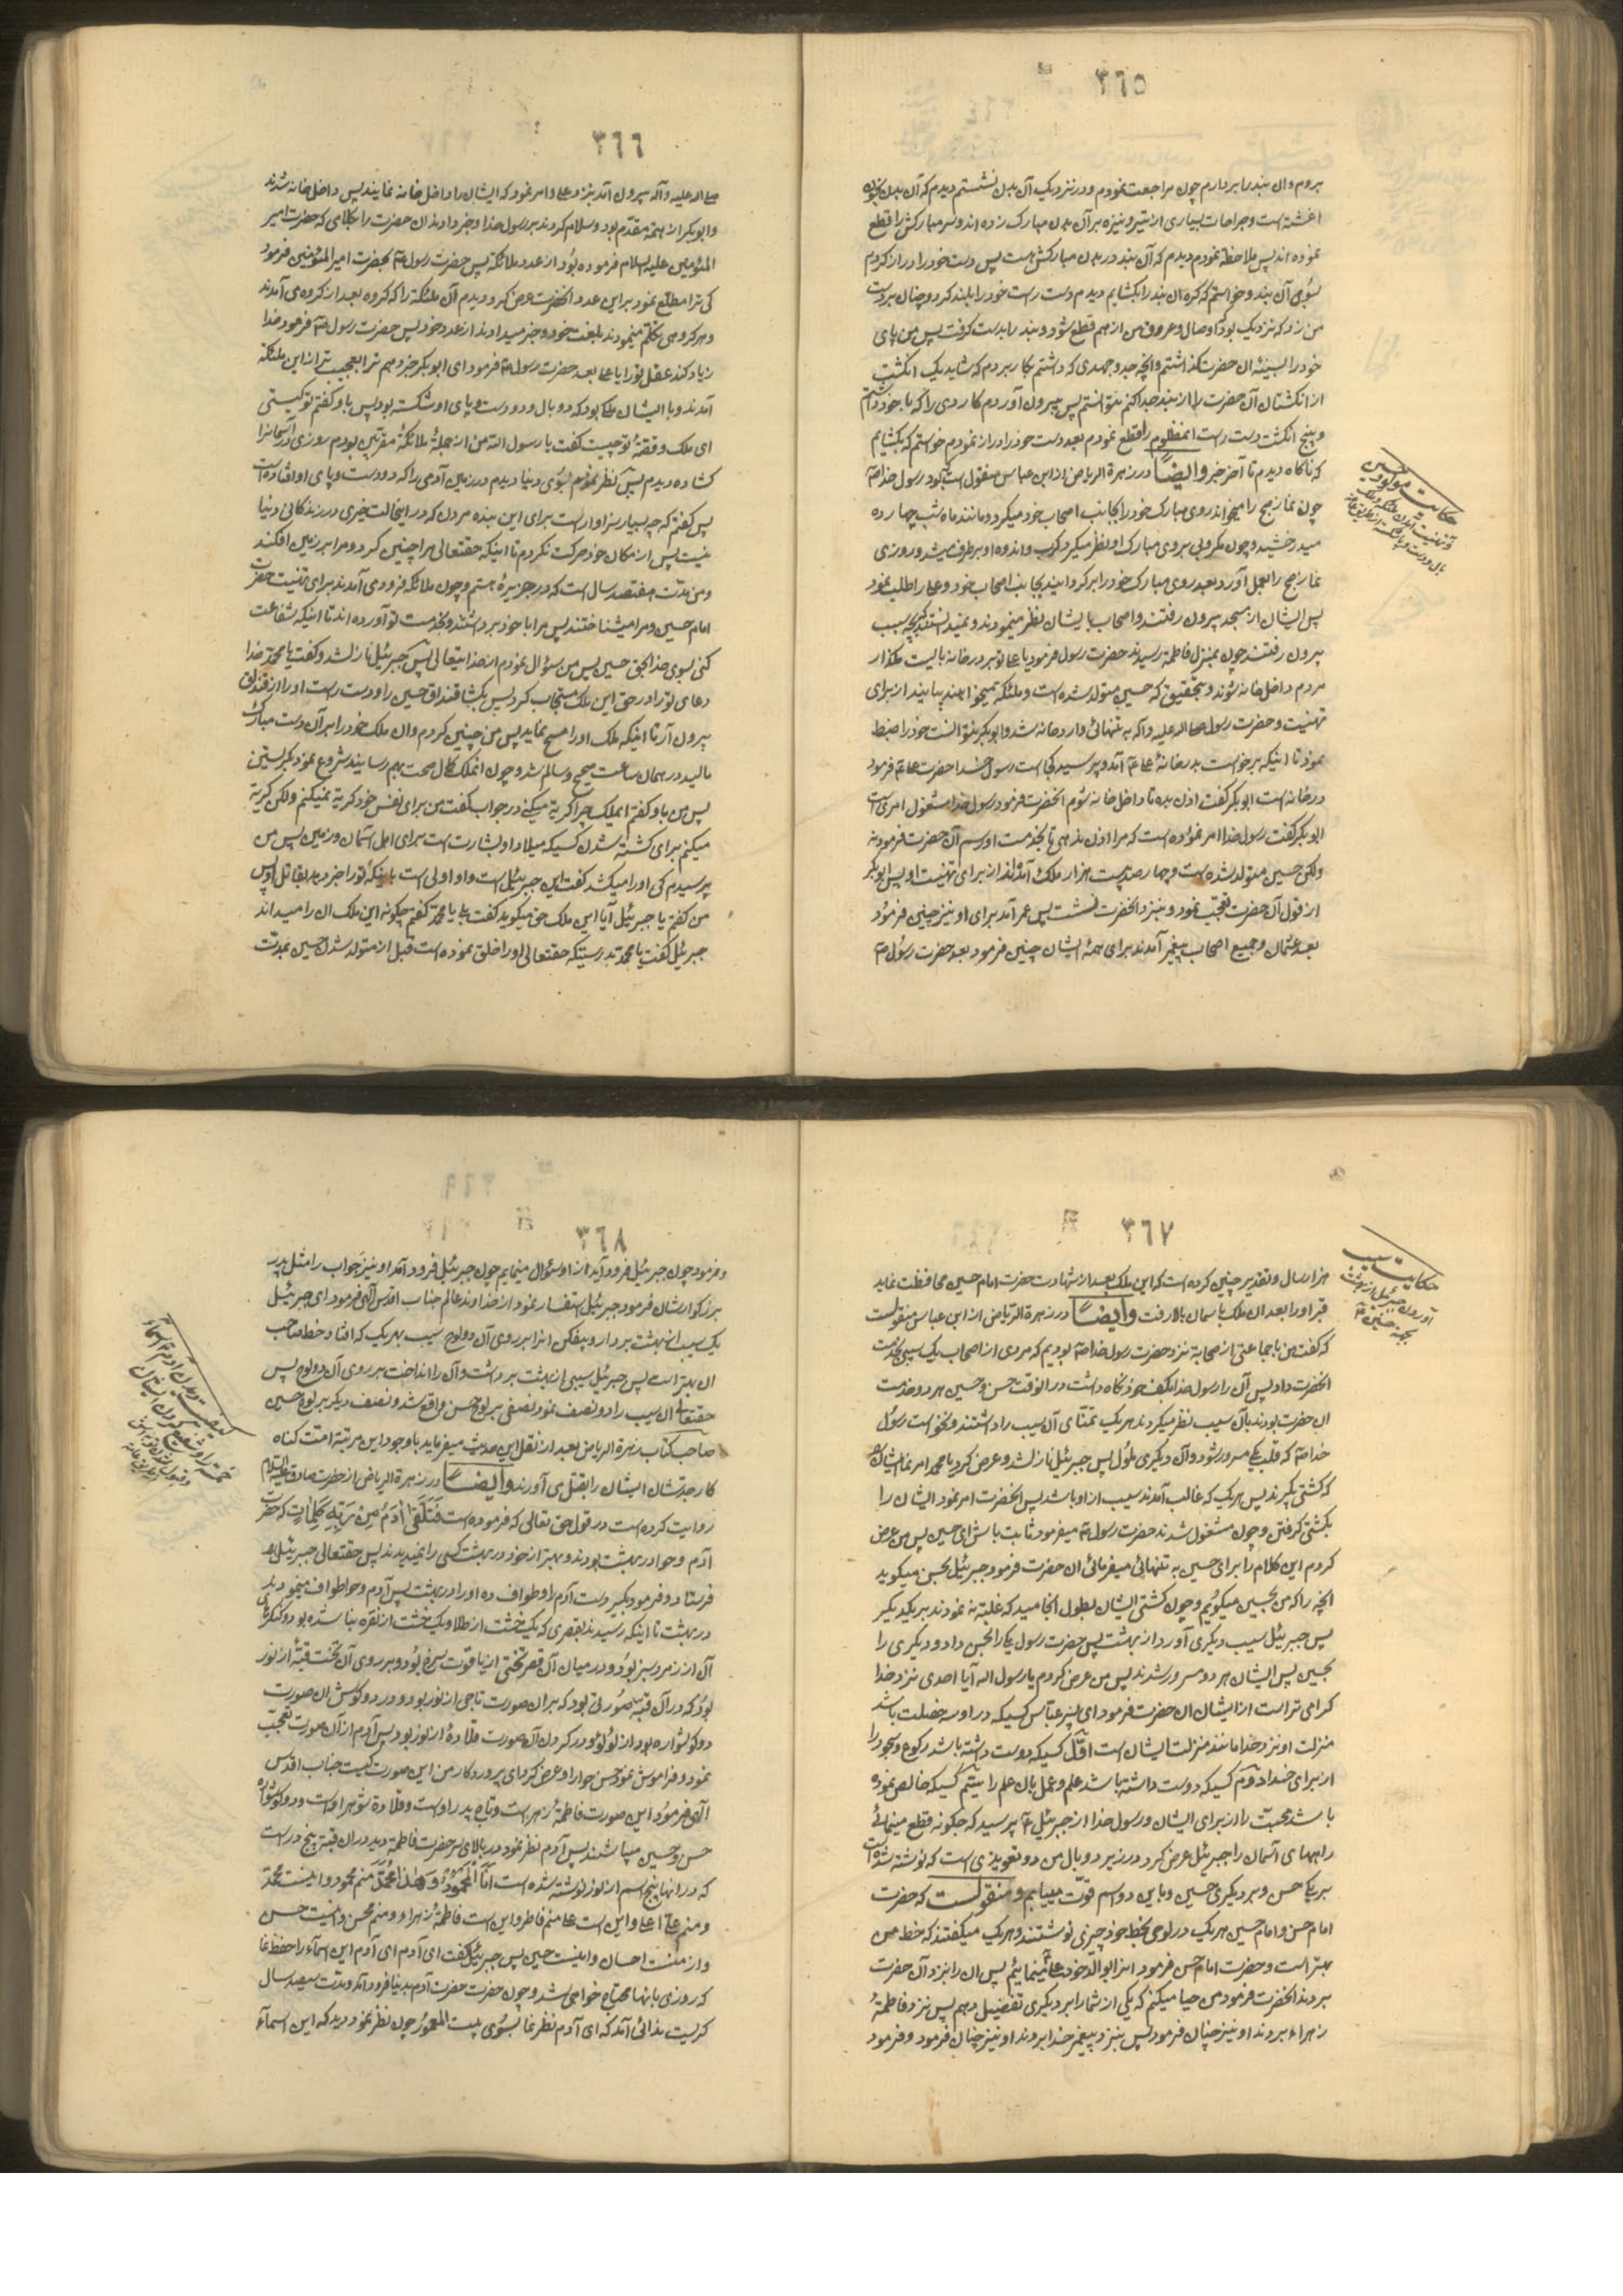 ٣٦٥
بروم وان بند را بردارم چون مراجعت نمودم و در نزدیک آن بدن نشستم دیدم که آن بدن بخون
اغشته است و جراحات بسیاری از تیر و نیزه بر آن بدن مبارک زده اند و سر مبارکش را قطع
نموده اند پس ملاحظه نمودم دیدم که آن بند در بدن مبارکش هست پس دست خود را دراز کردم
بسوی آن بند و خواستم که کره ان بند را بکشایم دیدم دست راست خود را بلند کرد و چنان بر دست
من زد که نزدیک بود اوصال و عروق من از هم قطع شود و بند را بدست کرفت پس من پای
خود را بسینهٔ ان حضرت گذاشتم و انچه جد و جهدی که داشتم بکار بردم که شاید یک انکشت
از انکشتان آن حضرت را از بند جدا کنم نتوانستم پس بیرون آوردم کاردی را که با خود داشتم
و پنج انکشت دست راست انمظلوم را قطع نمودم بعد دست خود را دراز نمودم خواستم که بکشایم
که ناکاه دیدم تا آخر خبر وایضاً در زهرة الریاض از ابن عباس منقول است که بود رسول خدا ص
چون نماز صبح را میخواند روی مبارک خود را بجانب اصحاب خود میکرد و مانند ماه شب چهارده
میدرخشید و چون مکروبی بروی مبارک او نظر میکرد کرب و اندوه او برطرف میشد و روزی
نماز صبح را بعمل آورد بعد روی مبارک خود را برکردانید بجانب اصحاب خود و علی را طلب نمود
پس ایشان از مسجد بیرون رفتند و اصحاب بایشان نظر مینمودند و نمیدانستند که بچه سبب
بیرون رفتند چون بمنزل فاطمه رسیدند حضرت رسول فرمود یا علی تو بر در خانه بایست مکذار
مردم داخل خانه شوند و بتحقیق که حسین متولد شده است و ملئکه میخواهند بیایند از برای
تهنیت و حضرت رسول صلی الله علیه و آله به تنهائی وارد خانه شد و ابوبکر نتوانست خود را ضبط
نمود تا اینکه برخواست بدر خانهٔ علی ع آمد و پرسید کجا است رسول خدا حضرت علی ع فرمود
در خانه است ابوبکر کفت اذن بده تا داخل خانه شوم انحضرت فرمود رسول خدا مشغول امری است
ابوبکر کفت رسول خدا امر نموده است که مرا اذن بدهی تا بخدمت او رسم آن حضرت فرمود نه
ولکن حسین متولد شده است و چهار صد بیست هزار ملک آمده اند از برای تهنیت او پس ابوبکر
از قول آن حضرت تعجب نمود و نیز در انحضرت نشست پس عمر آمد برای او نیز چنین فرمود
بعد عثمان و جمیع اصحاب پیغمبر آمدند برای همهٔ ایشان چنین فرمود بعد حضرت رسول ص
حکایت مولود حسین
٣٦٦
صلی الله علیه و آله بیرون آمد بنزد علی و امر نمود که ایشان را داخل خانه نمایند پس داخل خانه شدند
و ابوبکر از همه مقدّم بود و سلام کردند بر رسول خدا و خبر دادند ان حضرت را بکلامی که حضرت امیر
المئومنین علیه السلام فرموده بود از عدد ملائکه پس حضرت رسول ص بحضرت امیر المئومنین فرمود
کی ترا مطلع نمود بر این عدد انحضرت عرض کرد دیدم آن ملئکه را که کروه بعد از کروه می آمدند
و هر کروهی تکلم مینمودند بلغت خود و خبر میدادند از عدد خود پس حضرت رسول ص فرمود خدا
زیاد کند عقل تو را یا علی بعد حضرت رسول ص فرمود ای ابوبکر خبر دهم ترا بعجیب تر از این ملئکه
آمدند و با ایشان ملکی بود که دو بال و دو دست و پای او شکسته بود پس باو کفتم تو کیستی
ای ملک و قصّه تو چیست کفت یا رسول الله من از جملهٔ ملائکهٔ مقرّبین بودم روزی در آسمانرا
کشاده دیدم پس نظر نمودم بسوی دنیا دیدم در زمین آدمی را که دو دست و پای او افتاده است
پس کفتم که چه بسیار سزاوار است برای این بنده مردن که در اینحالت خیری در زندکانی دنیا
نیست پس از مکان خود حرکت نکردم تا اینکه حقتعالی مرا چنین کرد و مرا بر زمین افکند
و من مدّت هفتصد سال است که در جزیره هستم و چون ملائکه فرود می آمدند برای تهنیت حضرت
امام حسین و مرا میشناختند پس مرا با خود برداشتند و بخدمت تو آورده اند تا اینکه شفاعت
کنی بسوی خدا بحق حسین پس من سئوال نمودم از خدایتعالی پس جبرئیل نازل شد و کفت یا محمد خدا
دعای تو را در حق این ملک مستجاب کرد پس بکشا قنداق حسین را و دست راست او را از قنداق
بیرون آر تا اینکه ملک او را مسح نماید پس من چنین کردم و ان ملک خود را بر آن دست مبارک
مالید در همان ساعت صحیح و سالم شد و چون انملک کمال صحت بهم رسانید شروع نمود بکریستن
پس من باو کفتم ایملک چرا کریه میکنی در جواب کفت من برای نفس خود کریه نمیکنم ولکن کریه
میکنم برای کشته شدن کسیکه میلاد او بشارت است برای اهل آسمان و زمین پس من
پرسیدم کی او را میکشد کفت این جبرئیل است و او اولی است باینکه تو را خبر دهد بقاتل او پس
من کفتم یا جبرئیل آیا این ملک حق میکوید کفت بلی یا محمد کفتم چکونه این ملک ان را میداند
جبرئیل کفت یا محمد بدرستیکه حقتعالی او را خلق نموده است قبل از متولد شدن حسین بمدّت
٣٦٧
هزار سال و تقدیر چنین کرده است که این ملک بعد از شهادت حضرت امام حسین محافظت نماید
قبر او را بعد ان ملک باسمان بالا رفت وایضاً در زهرة الریاض از ابن عباس منقولست
که کفت من با جماعتی از صحابه نزد حضرت رسول خدا ص بودیم که مردی از اصحاب یک سیبی بخدمت
انحضرت داد پس آن را رسول خدا بکف خود نکاه داشت در انوقت حسن و حسین هر دو خدمت
ان حضرت بودند بآن سیب نظر میکردند هر یک تمنّای آن سیب را داشتند و نخواست رسول
خدا ص که قلب یکی مسرور شود و آن دیکری ملول پس جبرئیل نازل شد و عرض کرد یا محمد امر نما ایشان
که کشتی بکیرند پس هر یک که غالب آمدند سیب از او باشد پس انحضرت امر نمود ایشان را
بکشتی کرفتن و چون مشغول شدند حضرت رسول ص میفرمود ثابت باش ای حسین پس من عرض
کردم این کلام را برای حسین به تنهائی میفرمائی ان حضرت فرمود جبرئیل بحسن میکوید
انچه را که من بحسین میکویم و چون کشتی ایشان بطول انجامید که غلبه نه نمودند بر یکدیکر
پس جبرئیل سیب دیکری آورد از بهشت پس حضرت رسول یکی را بحسن داد و دیکری را
بحسین پس ایشان هر دو مسرور شدند پس من عرض کردم یا رسول الله آیا احدی نزد خدا
کرامی تر است از ایشان ان حضرت فرمود ای پسر عبّاس کسیکه در او سه خصلت باشد
منزلت او نزد خدا مانند منزلت ایشان است اوّل کسیکه دوست داشته باشد رکوع و سجود را
از برای خدا دوّم کسیکه دوست داشته باشد علم و عمل بان علم را سیّم کسیکه خالص نموده
باشد محبّت را از برای ایشان و رسول خدا از جبرئیل ع پرسید که چکونه قطع مینمائی
راههای آسمان را جبرئیل عرض کرد در زیر دو بال من دو تعویذی است که نوشته شده است
بر یکی حسن و بر دیکری حسین و باین دو اسم قوّت مییابم و منقولست که حضرت
امام حسن و امام حسین هر یک در لوحی بخط خود چیزی نوشتند و هر یک میکفتند که خط من
بهتر است و حضرت امام حسن فرمود این را بوالد خود علی مینمائیم پس ان را بنزد آن حضرت
بردند انحضرت فرمود من حیا میکنم که یکی از شما را بر دیکری تفضیل دهم پس نزد فاطمهٔ
زهراء بردند او نیز چنان فرمود پس بنزد پیغمبر خدا بردند او نیز چنان فرمود و فرمود
حکایت سیب
آوردن جبرئیل از بهشت
بجهة حسنین ع
٣٦٨
و فرمود چون جبرئیل فرود آید از او سئوال مینمایم چون جبرئیل فرود آمد او نیز جواب را مثل پدر
بزرکوارشان فرمود جبرئیل استفسار نمود از خداوند عالم جناب اقدس آلهی فرمود ای جبرئیل
یک سیب از بهشت بردار و بیفکن انرا بر روی آن دو لوح سیب بهر یک که افتاد خط صاحب
ان بهتر است پس جبرئیل سیبی از بهشت برداشت و آن را انداخت بر روی آن دو لوح پس
حقتعالی ان سیب را دو نصف نمود نصفی بر لوح حسن واقع شد و نصف دیکر بر لوح حسین
صاحب کتاب زهرة الریاض بعد از نقل این حدیث میفرماید باوجود این مرتبه امّت کناه
کار جدّشان ایشان را بقتل می آورند وایضاً در زهرة الریاض از حضرت صادق علیه السلام
روایت کرده است در قول حق تعالی که فرموده است فَتَلَقّیٰ آدَمُ مِنْ رَبِّهِ کَلِماتٍ که حضرت
آدم و حوا در بهشت بودند و بهتر از خود در بهشت کسی را نمیدیدند پس حقتعالی جبرئیل را
فرستاد و فرمود بکیر دست آدم را و طواف ده او را در بهشت پس آدم و حوا طواف مینمودند
در بهشت تا اینکه رسیدند بقصری که یک خشت از طلا و یک خشت از نقره بنا شده بود و کنکرهای
آن از زمرد سبز بود و در میان آن قصر تختی از یاقوت سرخ بود و بر روی آن تخت قبّهٔ از نور
بود که در آن قبّه صورتی بود که بر ان صورت تاجی از نور بود و در دو کوش ان صورت
دو کوشواره بود از لؤلؤ و در کردن آن صورت قلادهٔ از نور بود پس آدم از آن صورت تعجّب
نمود و فراموش نمود حسن حوا را و عرض کرد ای پروردکار من این صورت کیست جناب اقدس
آلهی فرمود این صورت فاطمهٔ زهرا است و تاج پدر او است و قلاده شوهر او است و دو کوشواره
حسن و حسین میباشند پس آدم نظر نمود در بالای سر حضرت فاطمه دید در ان قبّه پنج در است
که در انها پنج اسم از نور نوشته شده است اَنَا الْمَحْمُودُ وَ هٰذا مُحَمَّدٌ منم محمود و اینست محمّد
و منم علیّ اعلی و این است علی منم فاطر و این است فاطمهٔ زهرا و منم محسن و اینست حسن
و از منست احسان و اینست حسین پس جبرئیل کفت ای آدم ای آدم این اسمآء را حفظ نما
که روزی بانها محتاج خواهی شد و چون حضرت حضرت آدم بدنیا فرود آمد و مدّت سیصد سال
کریست ندائی آمد که ای آدم نظر نما بسوی بیت المعمور چون نظر نمود دید که این اسمآء